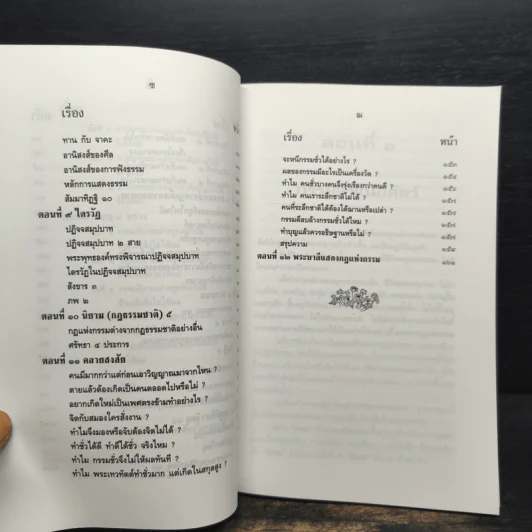 ฃ
เรื่อง
ทาน กับ จาคะ
อานิสงส์ของศีล
อานิสงส์ของการฟังธรรม
หลักการแสดงธรรม
สัมมาทิฏฐิ ๑๐
ตอนที่ ๙ ไตรวัฏ
ปฏิจจสมุปบาท
ปฏิจจสมุปบาท ๒ สาย
พระพุทธองค์ทรงพิจารณาปฏิจจสมุปบาท
ไตรวัฏในปฏิจจสมุปบาท
สังขาร ๓
ภพ ๒
ตอนที่ ๑๐ นิยาม (กฎธรรมชาติ) ๕
กฎแห่งกรรมต่างจากกฎธรรมชาติอย่างอื่น
ศรัทธา ๔ ประการ
ตอนที่ ๑๑ คลายสงสัย
คนมีมากกว่าแต่ก่อนเอาวิญญาณมาจากไหน ?
ตายแล้วต้องเกิดเป็นคนตลอดไปหรือไม่ ?
อยากเกิดใหม่เป็นเพศตรงข้ามทำอย่างไร ?
จิตกับสมองใครสั่งงาน ?
ทำไมจึงมองหรือจับต้องจิตไม่ได้ ?
ทำชั่วได้ดี ทำดีได้ชั่ว จริงไหม ?
ทำไม กรรมชั่วจึงไม่ให้ผลทันที ?
ทำไม พระเทวทัตต์ทำชั่วมาก แต่เกิดในสกุลสูง ?
ฌ
เรื่อง หน้า
จะหนีกรรมชั่วได้อย่างไร ? ๑๕๓
ผลของกรรมมีอะไรเป็นเครื่องวัด ?
ทำไม คนชั่วบางคนจึงรุ่งเรืองกว่าคนดี ?
ทำไม คนเราระลึกชาติไม่ได้ ?
คนที่ระลึกชาติได้ต้องได้ฌานหรือเปล่า ?
กรรมดีลบล้างกรรมชั่วได้ไหม ?
ทำบุญแล้วควรอธิษฐานหรือไม่ ?
สรุปความ
ตอนที่ ๑๒ พระบาลีแสดงกฎแห่งกรรม ๑๖๑